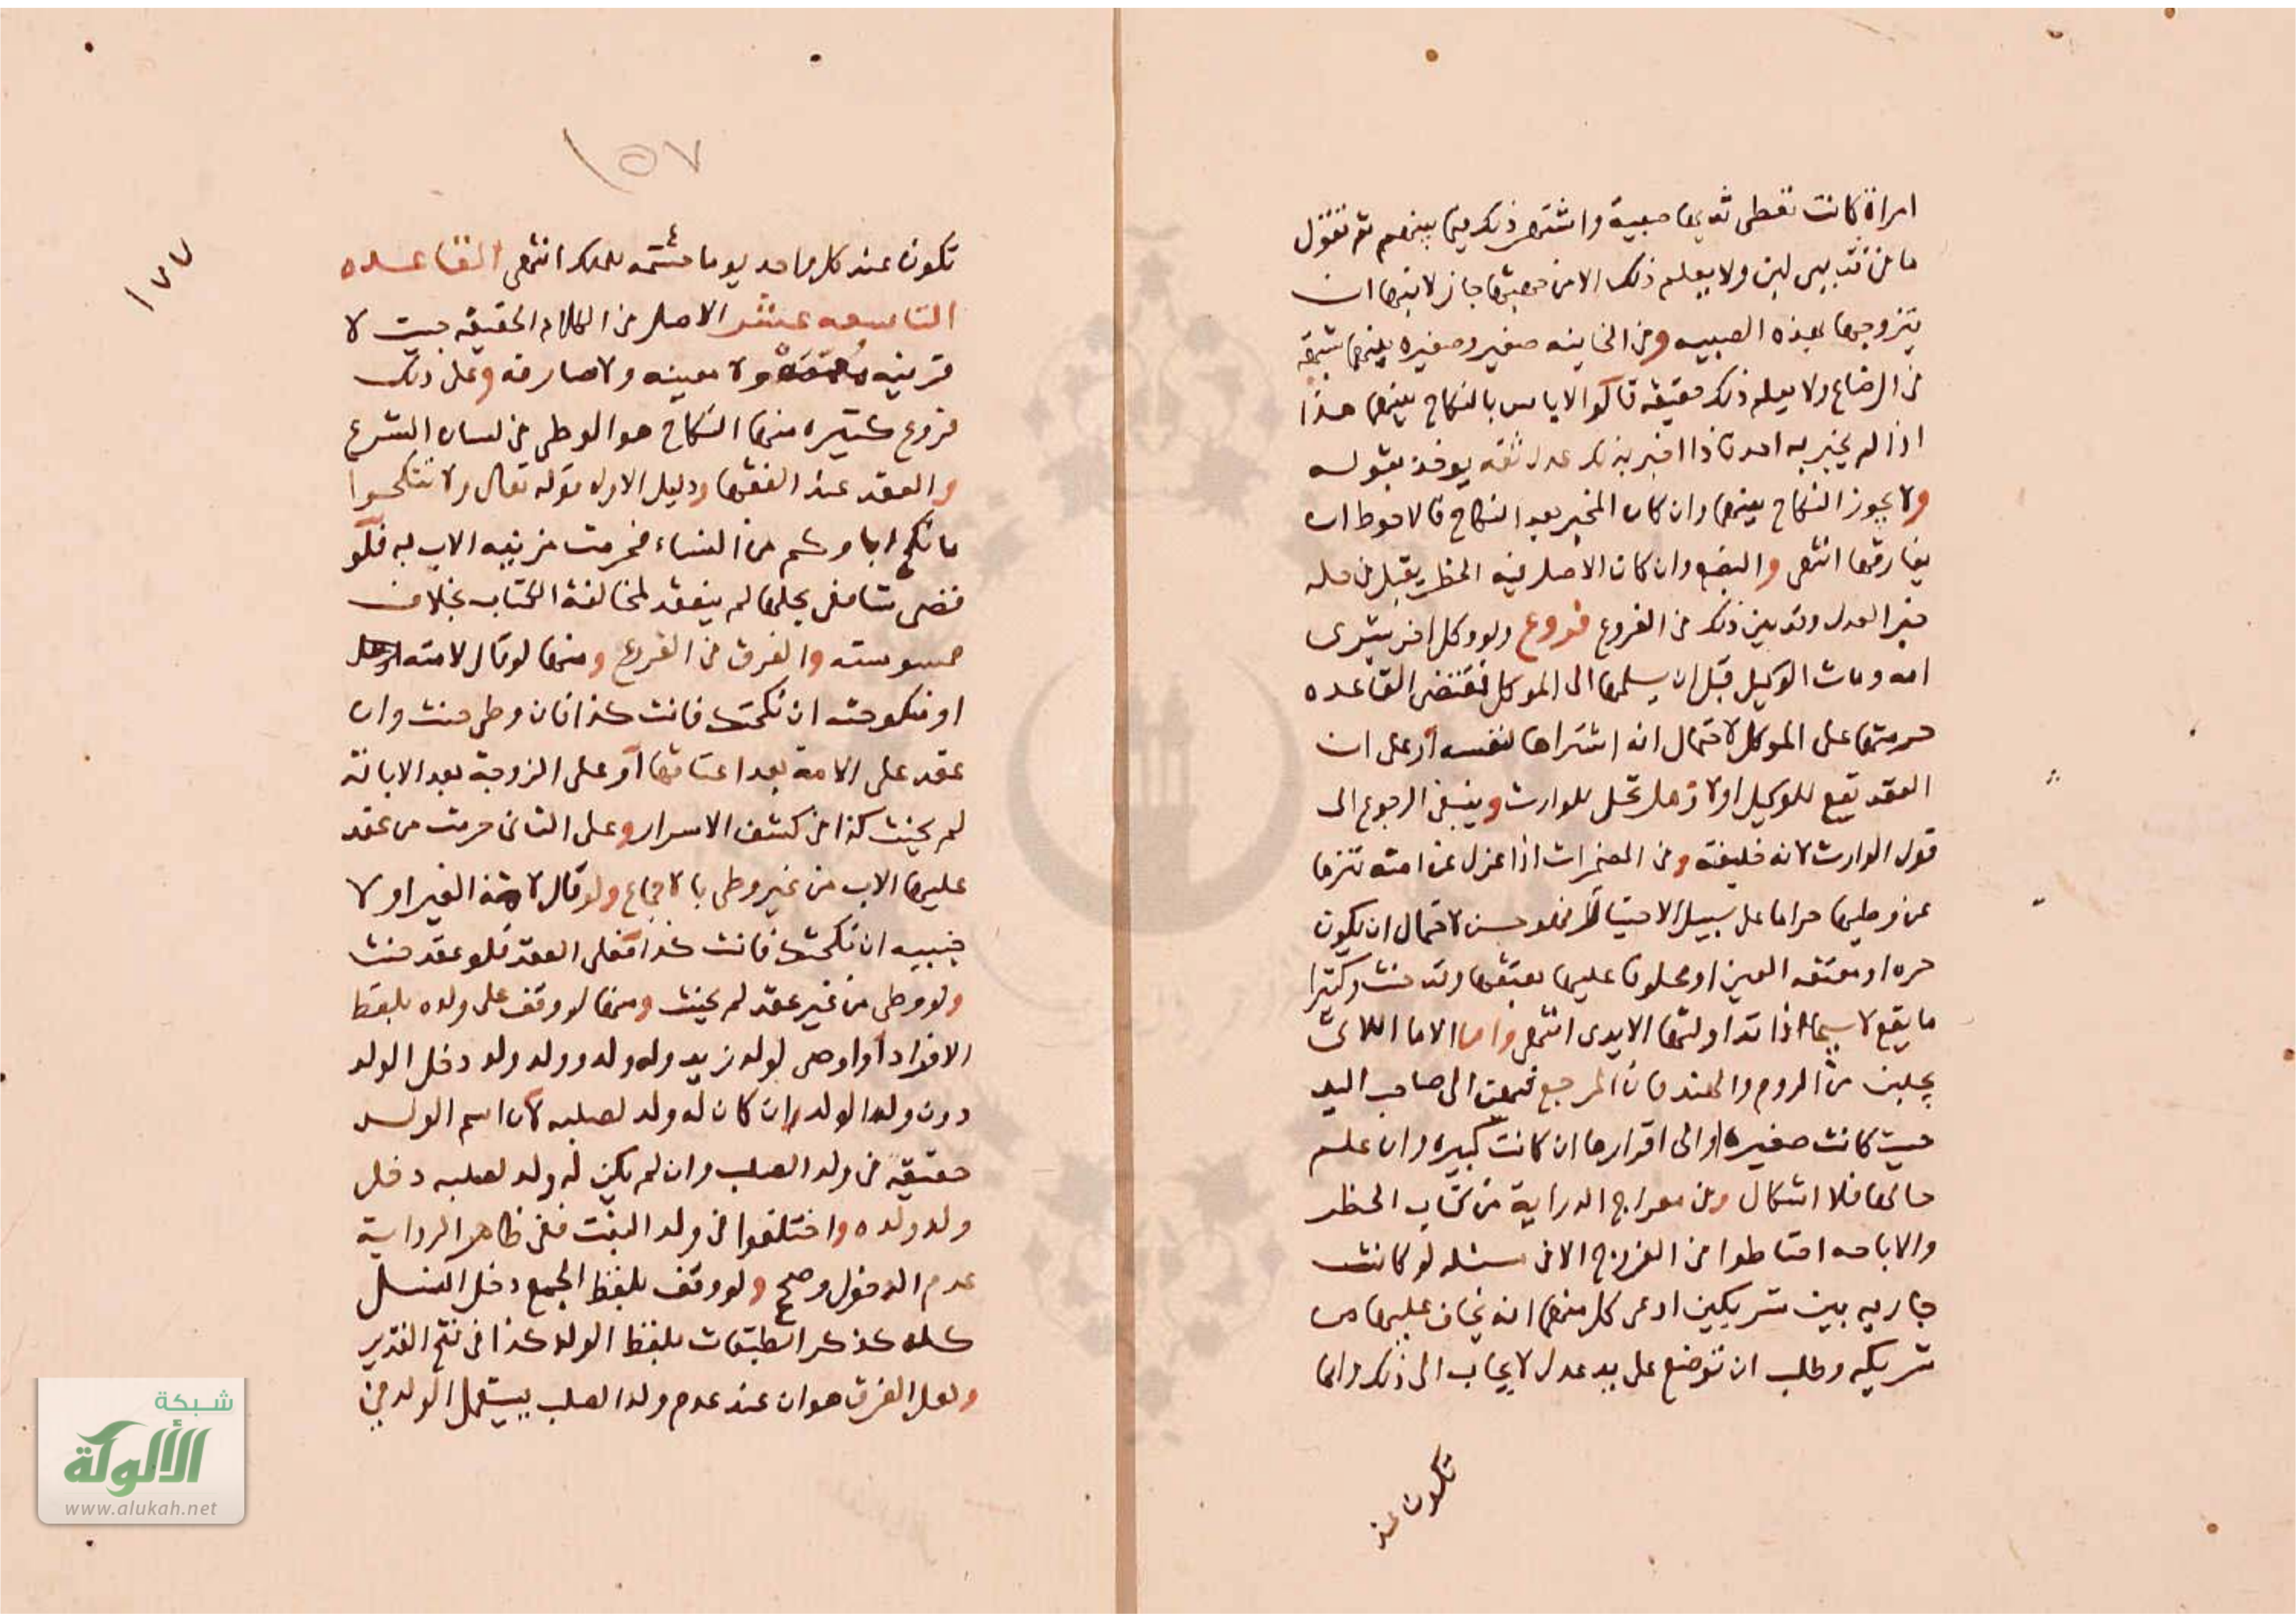 امراة كانت تعطى ثديها صبية واشتهر ذلك فيما بينهم ثم تقول
ما فى ثديى لبن ولا يعلم ذلك الا من جهتها جاز لابنها ان
يتزوجها بهذه الصبيه وفى الخانيه صغير وصغيره بينهما شبهة
فى الرضاع ولا يعلم ذلك حقيقة قالوا لا باس بالنكاح بينهما هذا
اذا لم يخبر به احد فاذا اخبر بذلك عدل ثقه يوخذ بقوله
ولا يجوز النكاح بينهما وان كان المخبر بعد النكاح فالاحوط ان
يفارقها انتهى والبضع وان كان الاصل فيه الحظر يقبل فى حله
خبر العدل وقد بين ذلك فى الفروع فروع ولو وكل اخر بشرى
امه ومات الوكيل قبل ان يسلمها الى الموكل فمقتضى القاعده
حرمتها على الموكل لاحتمال انه اشتراها لنفسه او على ان
العقد يقع للوكيل اولا وهل تحل للوارث وينبغى الرجوع الى
قول الوارث لانه خليفته وفى المضمرات اذا عزل عن امته تنزها
عن وطيها حراما على سبيل الاحتياط فهو حسن لاحتمال ان يكون
حره او معتقه الغير او محلوفا عليها بعتقها وقد حنث وكثيرا
ما يقع لا سيما اذا تداولتها الايدى انتهى واما الاما اللاتى
يجلبن من الروم والهند فان المرجع فيهن الى صاحب اليد
حيث كانت صغيره او الى اقرارها ان كانت كبيره وان علم
حالها فلا اشكال وفى معراج الدراية من كتاب الحظر
والاباحه احتاطوا فى الفروج الا فى مسئله لو كانت
جاريه بين شريكين ادعى كل منهما انه يخاف عليها من
شريكه وطلب ان توضع على يد عدل لا يجاب الى ذلك وانما
تكون عند
١٥٧
١٧٧
تكون عند كل واحد يوما حشمة للملك انتهى القاعده
التاسعه عشر الاصل فى الكلام الحقيقه حيث لا
قرينه ولا معينه ولا صارفه وعلى ذلك
فروع كثيره منها النكاح هو الوطى فى لسان الشرع
والعقد عند الفقها ودليل الاول قوله تعالى ولا تنكحوا
ما نكح اباوكم من النساء فحرمت مزنيه الاب به فلو
قضى شافعى بحلها لم ينفذ لمخالفة الكتاب بخلاف
ممسوسته والفرق فى الفروع ومنها لو قال لامته
او منكوحته ان نكحتك فانت كذا فان وطى حنث وان
عقد على الامة بعد اعتاقها او على الزوجة بعد الابانة
لم يحنث كذا فى كشف الاسرار وعلى الثانى حرمت من عقد
عليها الاب من غير وطى بالاجماع ولو قال لامة الغير او لا
جنبيه ان نكحتك فانت كذا فعلى العقد فلو عقد حنث
ولو وطى من غير عقد لم يحنث ومنها لو وقف على ولده بلفظ
الافراد او اوصى لولد زيد وله ولد وولد ولد دخل الولد
دون ولد الولد ان كان له ولد لصلبه لان اسم الولد
حقيقة فى ولد الصلب وان لم يكن له ولد لصلبه دخل
ولد ولده واختلفوا فى ولد البنت ففى ظاهر الرواية
عدم الدخول وصحح ولو وقف بلفظ الجمع دخل النسل
كله كذكر الطبقات بلفظ الولد كذا فى فتح القدير
ولعل الفرق هو ان عند عدم ولد الصلب يستعمل الولد فى
شبكة
الألوكة
www.alukah.net